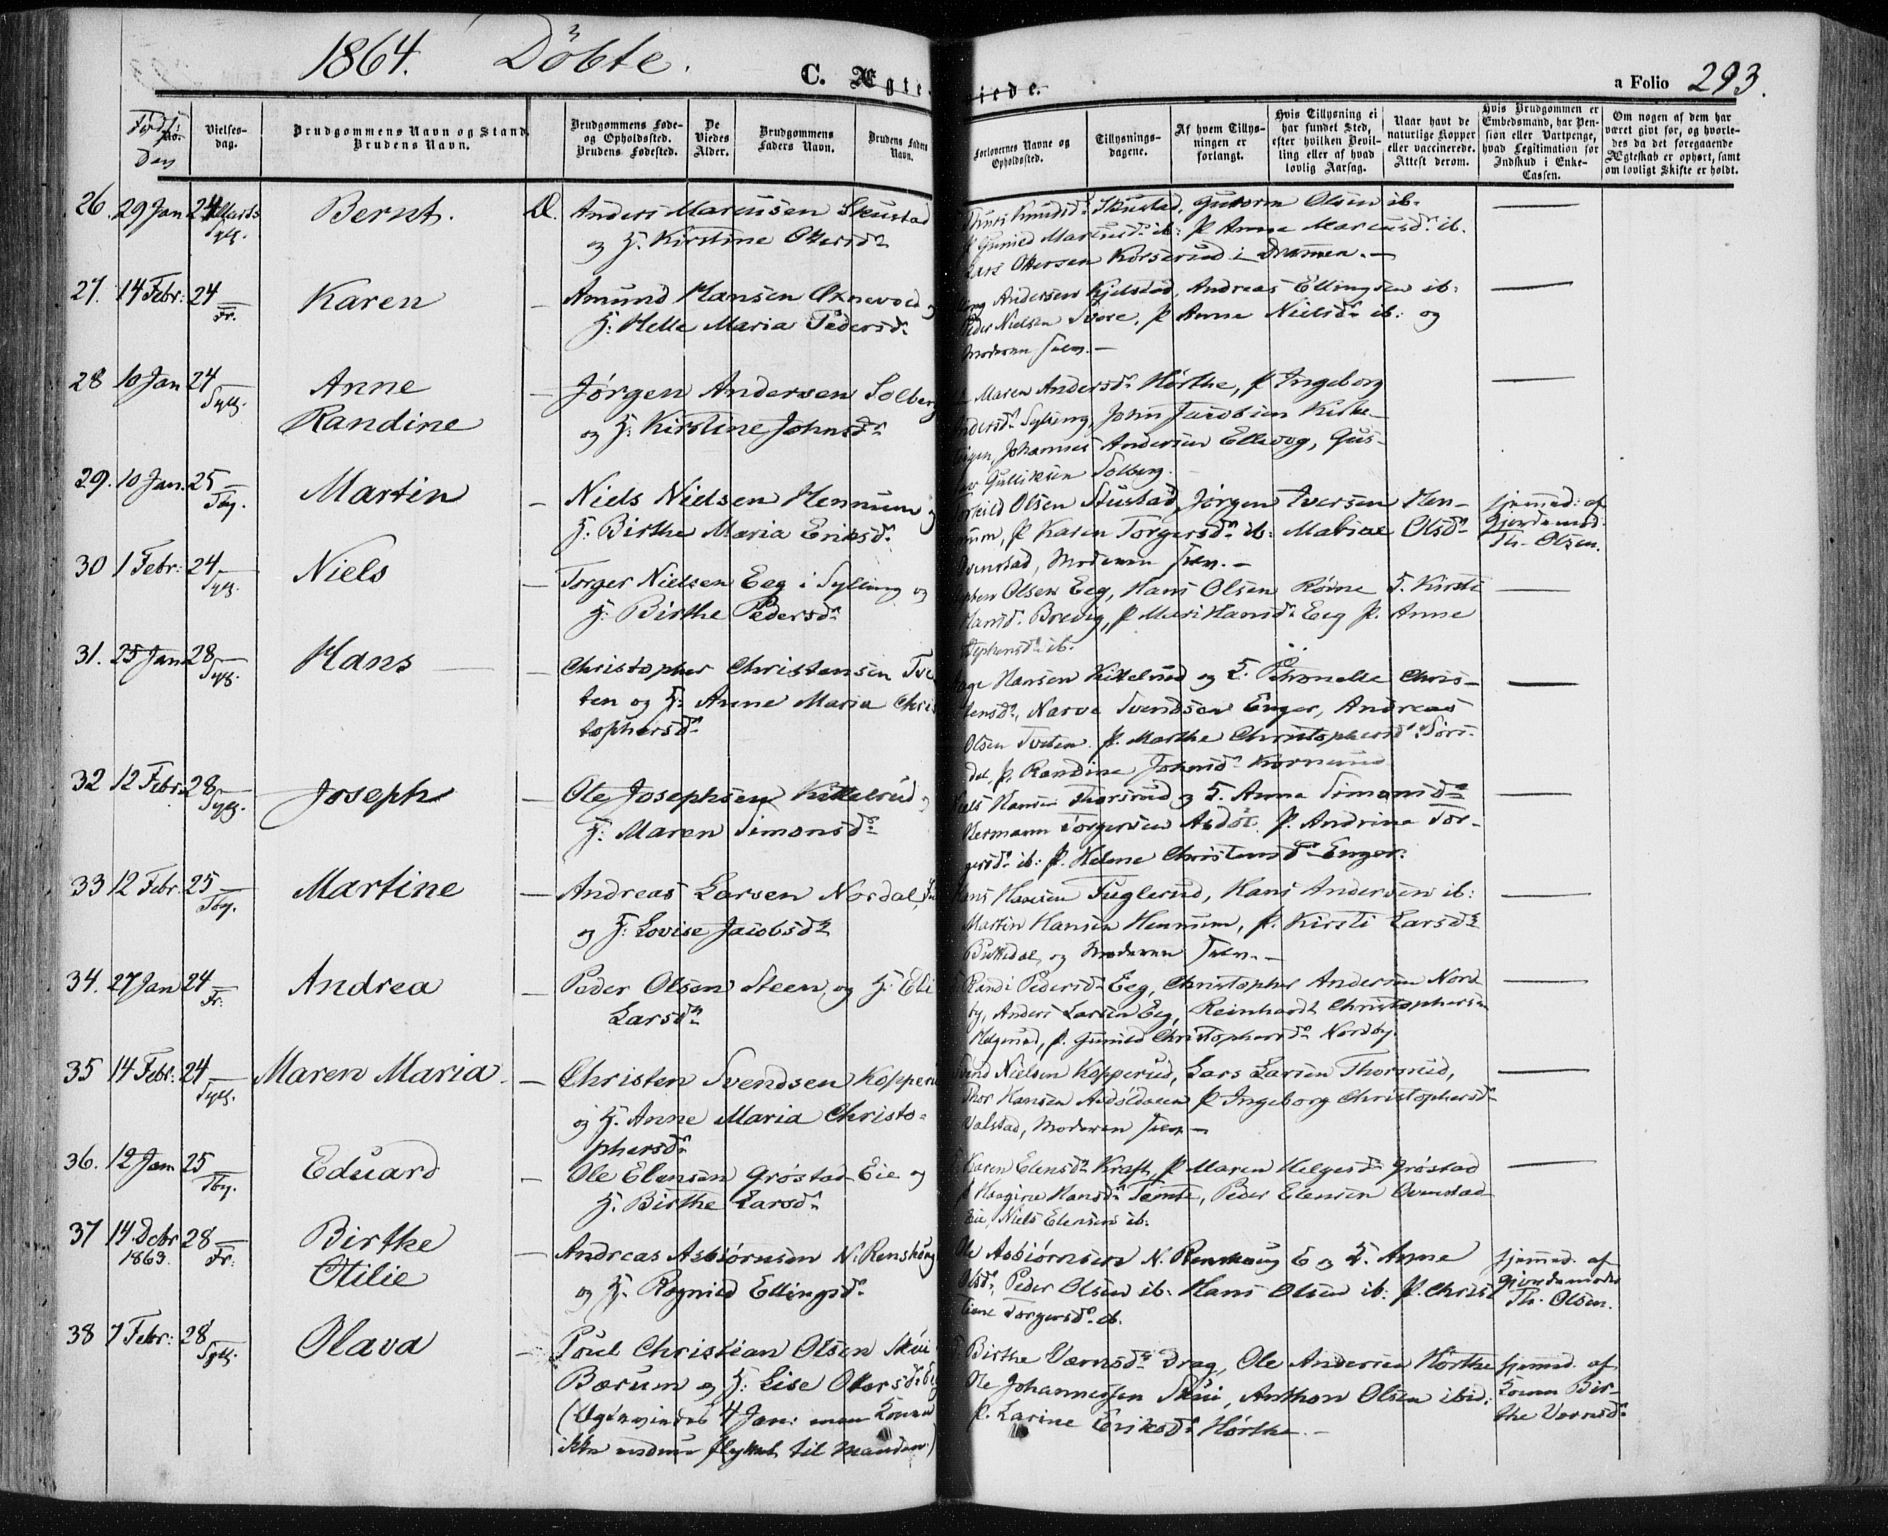 1864. Döbte.
C. Ægte viede.
a Folio 293.
Föds
Den
Vielses-
dag.
Brudgommens Navn og Stand
Brudens Navn.
Brudgommens Føde-
og Opholdssted.
Brudens Fødested.
De
Viedes
Alder.
Brudgommens
Faders Navn.
Brudens Faders
Navn.
Forlovernes Navne og
Opholdssted.
Tillysnings-
dagene.
Af hvem Tillys-
ningen er
forlangt.
Hvis Tillysning ei
har fundet Sted,
efter hvilken Bevil-
ling eller af hvad
lovlig Aarsag.
Naar havt de
naturlige Kopper
eller vaccinerede.
Attest derom.
Hvis Brudgommen er
Embedsmand, har Pen-
sion eller Vartpenge,
hvad Legitimation for
Indskud i Enke-
Cassen.
Om nogen af dem har
været givt før, og hvorle-
des da det foregaaende
Ægteskab er ophørt, samt
om lovligt Skifte er holdt.
26. 29 Jan 24 Marts Bernt. D. Anders Marcusen Skustad Knudsd. Skustad, Guttorm Olsen ib.
Sylg. og H. Kirstine Ottersd. P. Gunild Marcusd. ib: P. Anne Marcusd. ib.
Lars Ottersen Korserud i Drammen. —
27. 14 Febr: 24 Karen — Amund Hansen Oxnevold Andersen Kjelstad, Andreas Ellingsen ib: —
Fr. H: Helle Maria Pedersd. Peder Nielsen Svere, P. Anne Nielsd. ib: og
Moderen selv. —
28 10 Jan 24 Anne — Jørgen Andersen Solberg Maren Andersd. Hörthe, P. Ingeborg —
Sylg. Randine og H: Kirstine Johnsd. Andersd. Sylling, John Jacobsen Kirke-
Johannes Andersen Ellevog, Gus-
Gulliksen Solberg.
29. 10 Jan. 25 Martin — Niels Nielsen Hennum Olsen Stustad, Jörgen Iversen Hen- hjemmed: af
Tbg. H. Birthe Maria Eriksd. num, P. Karen Torgersd. ib: Mathias Olsd. Gjordemod.
Ovenstad, Moderen selv. — Th. Olsen.
30 1 Febr: 24 Niels — Torger Nielsen Eeg i Sylling og Olsen Eeg, Hans Olsen Röine J. Kirsti —
Sylg. H. Birthe Pedersd. Hansd. Brevig, P. Mari Hansd. Eeg P. Anne
Stephensd. ib.
31. 25 Jan 28 Hans — Christopher Christensen Tve Hansen Kittelrud og H. Petronelle Chris- —
Sylg. ten og H: Anne Maria Chris tensd., Narve Svendsen Enger, Andreas
tophersd. Olsen Tveten. P. Marthe Christophersd. Sörs-
dal, P. Randine Johnsd. Kornerud
32 12 Febr. 28 Joseph — Ole Josephsen Kittelrud Niels Hansen Thorsrud og H. Anna Simonsd. —
Sylg. H: Maren Simonsd. Hermann Torgersen Asdöl. P. Andrine Tor-
gersd. ib: P. Helene Christensd. Enger.
33 12 Febr. 25 Martine — Andreas Larsen Nordal, Hans Hansen Fuglerud, Hans Andersen ib: —
Tbg. og H: Lovise Jacobsd. Martin Hansen Hennum, P. Kirsti Larsd.
og Moderen selv. —
34. 27 Jan 24 Andrea — Peder Olsen Steen og H: Eli Randi Pedersd. Eeg, Christopher Andersen Nord —
Fr. Larsd. by, Anders Larsen Eeg, Reinhardt Christophersen
Helgerud, P. Gunild Christophersd. Nordby.
35 14 Febr. 24 Maren Maria — Christen Svendsen Kopperud Svend Nielsen Kopperud, Lars Larsen Thorsrud, —
Sylg. og H. Anne Maria Christo- Thor Hansen P. Ingeborg Christophersd.
phersd. Valstad, Moderen selv —
36. 12 Jan 25 Eduard — Ole Elensen Gröstad Eie og Karen Elensd. Kraft, P. Maren Helgesd. Gröstad —
Tbg. H. Birthe Larsd. Hansd. Tomte, Peder Elensen Ovenstad
Eie, Niels Elensen ib.
37 14 Debr 28 Birthe — Andreas Asbiörnsen N. Renskoug Ole Asbiörnsen N. Renskoug E og H. Anne hjemmed. af
1863. Fr: Otilie og H. Ragnild Ellingsd. Olsd. Peder Olsen ib. Hans Olsen ib: P. Christ Gjordemoder
tine Torgersd. ib. Th. Olsen.
38 7 Febr: 28 Olava — Poul Christian Olsen Skui Birthe Værnsd. Drag, Ole Andersen Hörthe hjemmed. af
Sylg. Bærum og H: Lise Ottersd. Ole Johannessen Skui, Anthon Olsen ibid: Konen Bir-
(Ægteviedes 4 Jan: men Konen P. Larine Eriksd. Hörthe. — the Vernsd.
ikke endnu flyttet til Manden.)